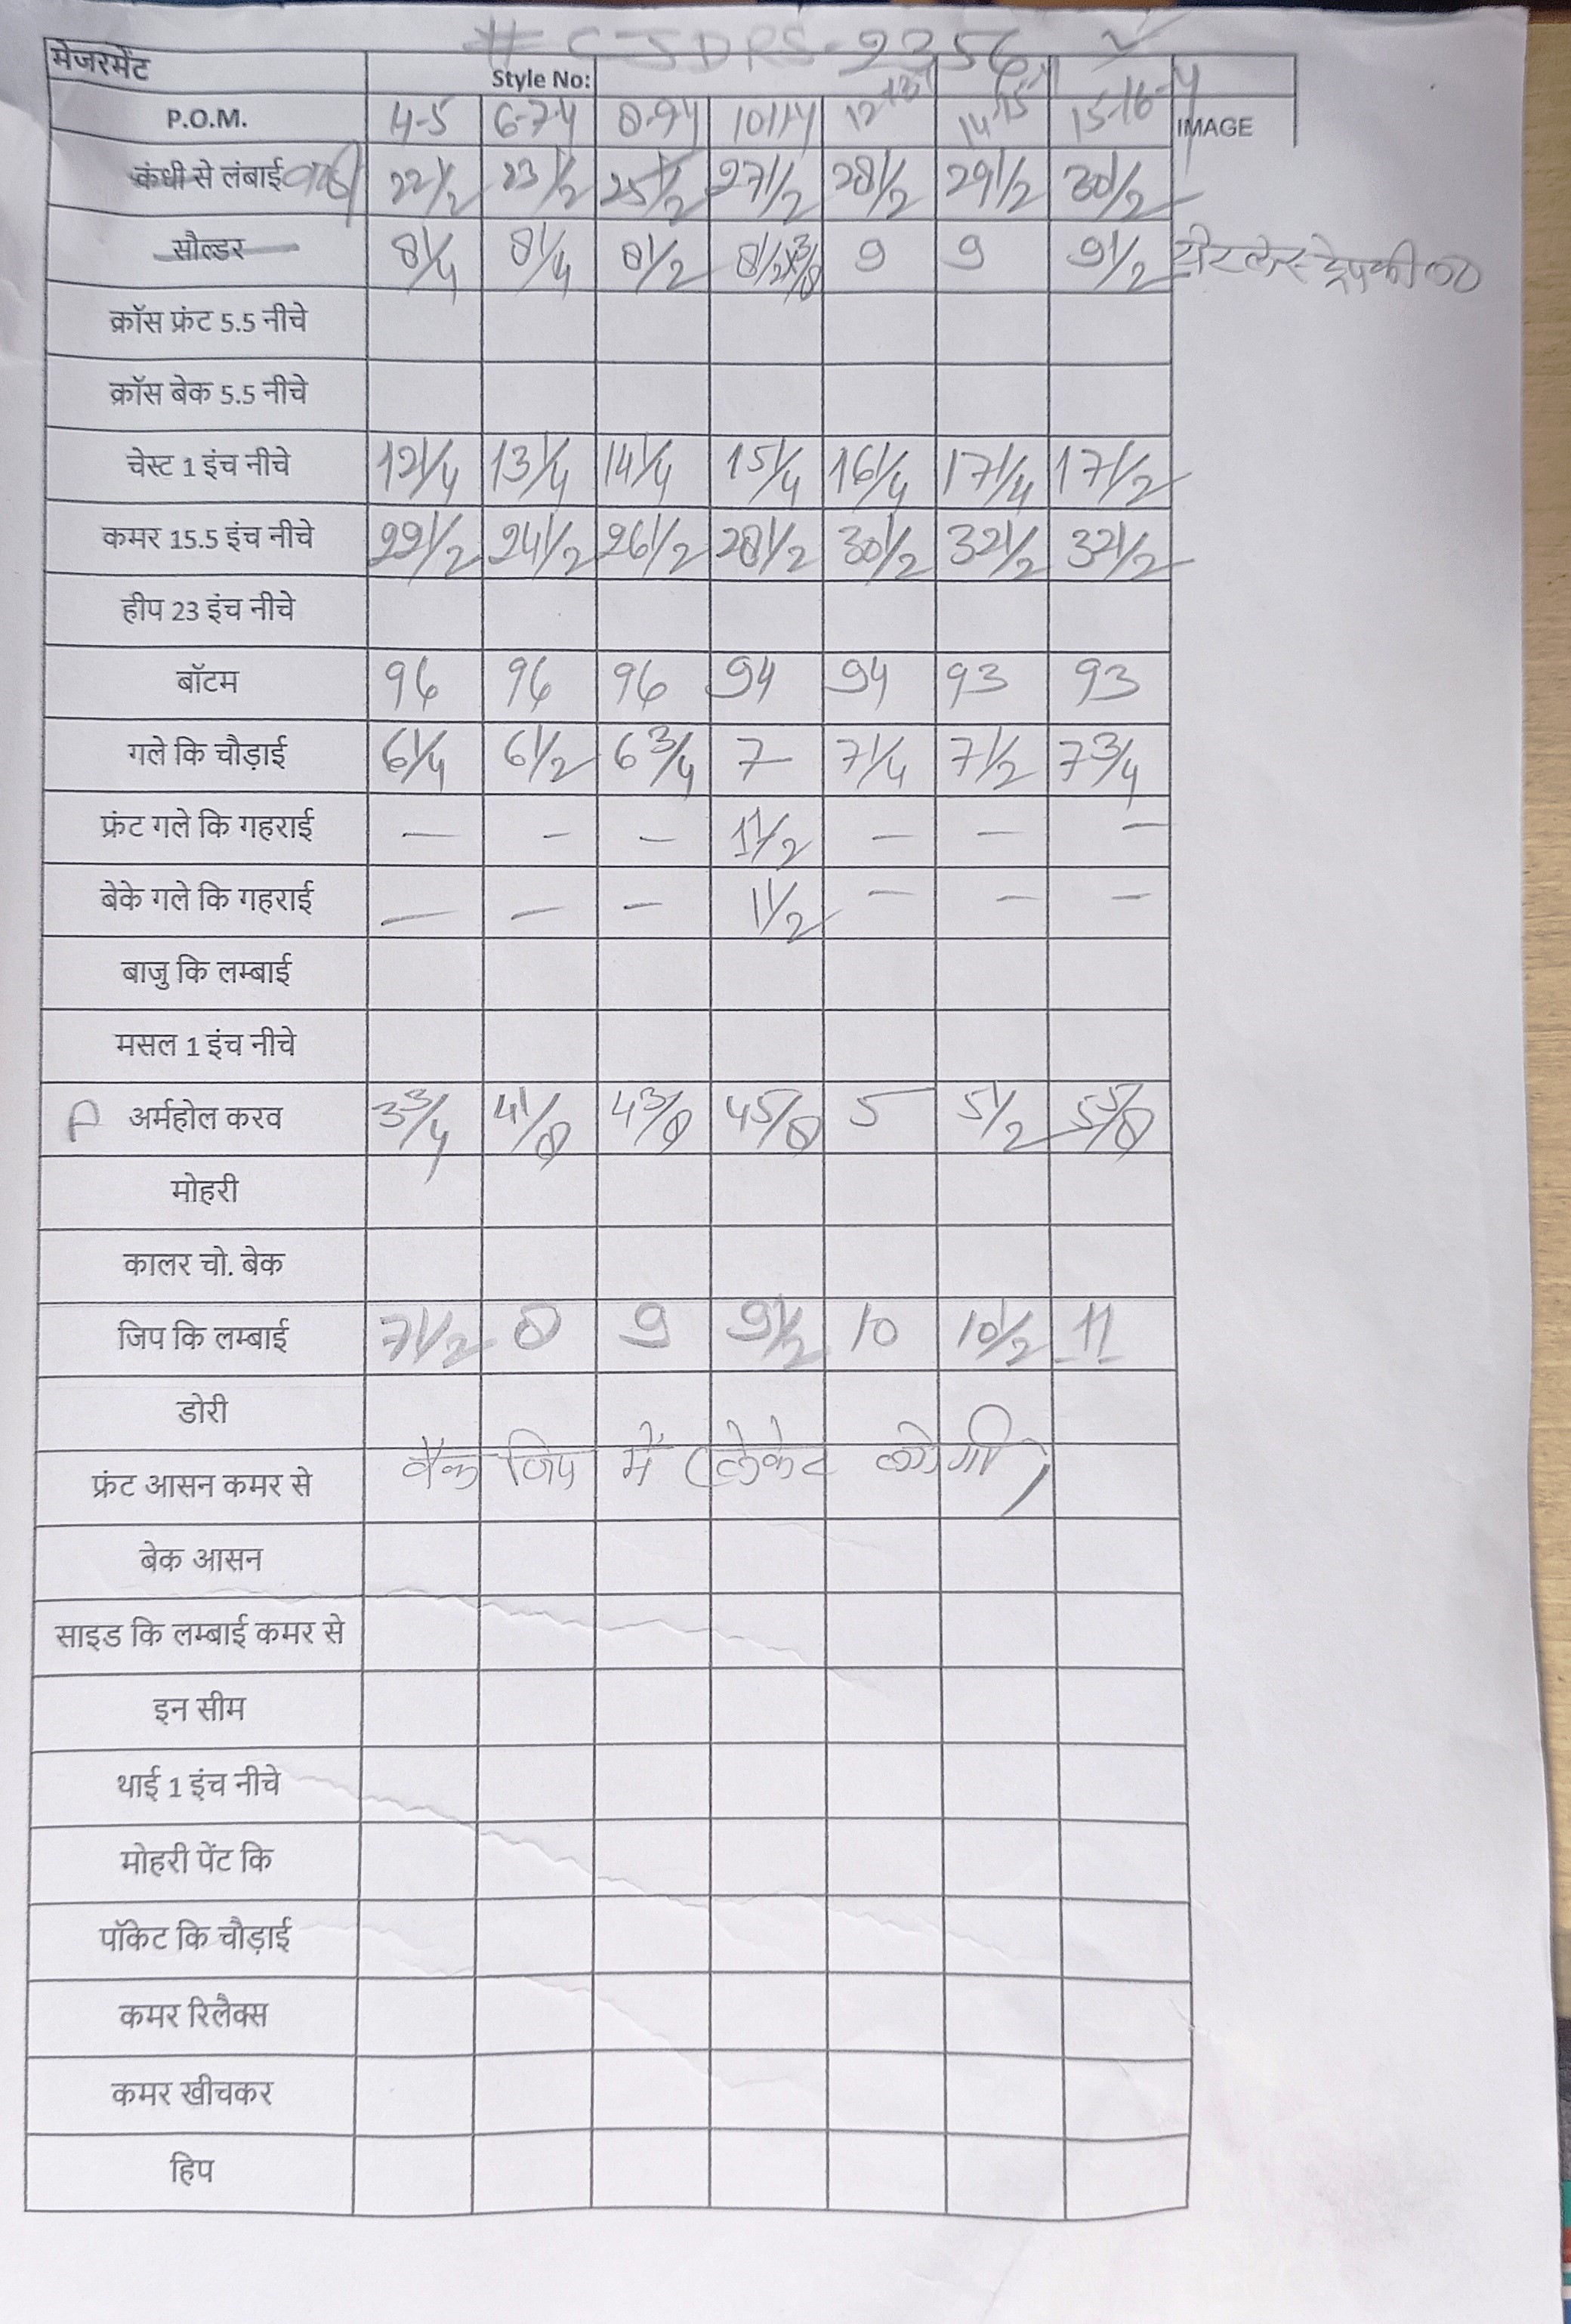 # C-SDRS-2356
मेजरमेंट Style No:
P.O.M. 4-5 6-7-Y 8-9Y 10-11-Y 12-13Y 14-15-Y 15-16-Y IMAGE
कंधी से लंबाई 22 1/2 23 1/2 25 1/2 27 1/2 28 1/2 29 1/2 30 1/2
सौल्डर 8 1/4 8 1/4 8 1/2 8 1/2 x 3/8 9 9 9 1/2
क्रॉस फ्रंट 5.5 नीचे
क्रॉस बेक 5.5 नीचे
चेस्ट 1 इंच नीचे 12 1/4 13 1/4 14 1/4 15 1/4 16 1/4 17 1/4 17 1/2
कमर 15.5 इंच नीचे 22 1/2 24 1/2 26 1/2 28 1/2 30 1/2 32 1/2 32 1/2
हीप 23 इंच नीचे
बॉटम 96 96 96 94 94 93 93
गले कि चौड़ाई 6 1/4 6 1/2 6 3/4 7 7 1/4 7 1/2 7 3/4
फ्रंट गले कि गहराई — - — 1 1/2 — — —
बेके गले कि गहराई — — — 1 1/2 — — —
बाजु कि लम्बाई
मसल 1 इंच नीचे
अर्महोल करव 3 3/4 4 1/8 4 3/8 4 5/8 5 5 1/2 5 5/8
मोहरी
कालर चो. बेक
जिप कि लम्बाई 7 1/2 8 9 9 1/2 10 10 1/2 11
डोरी
फ्रंट आसन कमर से बैक जिप में
बेक आसन
साइड कि लम्बाई कमर से
इन सीम
थाई 1 इंच नीचे
मोहरी पेंट कि
पॉकेट कि चौड़ाई
कमर रिलैक्स
कमर खीचकर
हिप